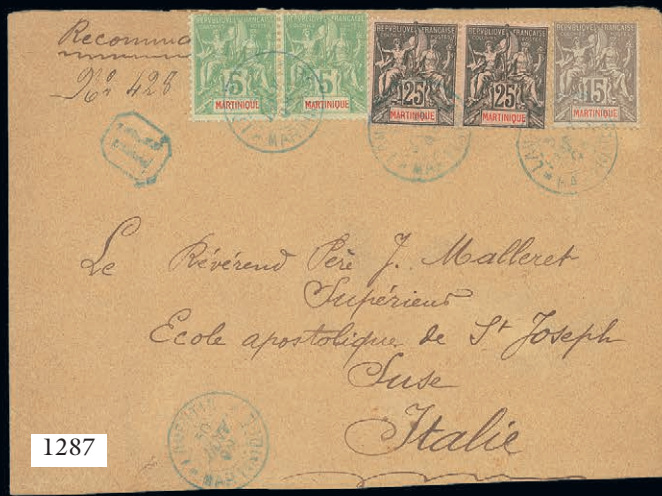 Recommd
No 428
REPUBLIQUE FRANÇAISE
5
MARTINIQUE
REPUBLIQUE FRANÇAISE
5
MARTINIQUE
REPUBLIQUE FRANÇAISE
25
MARTINIQUE
REPUBLIQUE FRANÇAISE
25
MARTINIQUE
REPUBLIQUE FRANÇAISE
15
MARTINIQUE
Le Révérend Père J. Malleret
Supérieur
Ecole apostolique de St Joseph
Suse
Italie
1287